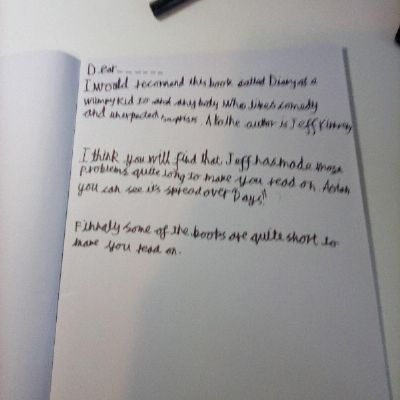 Dear......
I would recomend this book called Diary of a
wimpy Kid to and any body who likes comedy
and unexpected surprises. Also the author is Jeff Kinney
I think you will find that Jeff has made
problems quite long to make you read on.
you can see it's spread over Days!!
Finnaly some of the books are quite short to
make you read on.